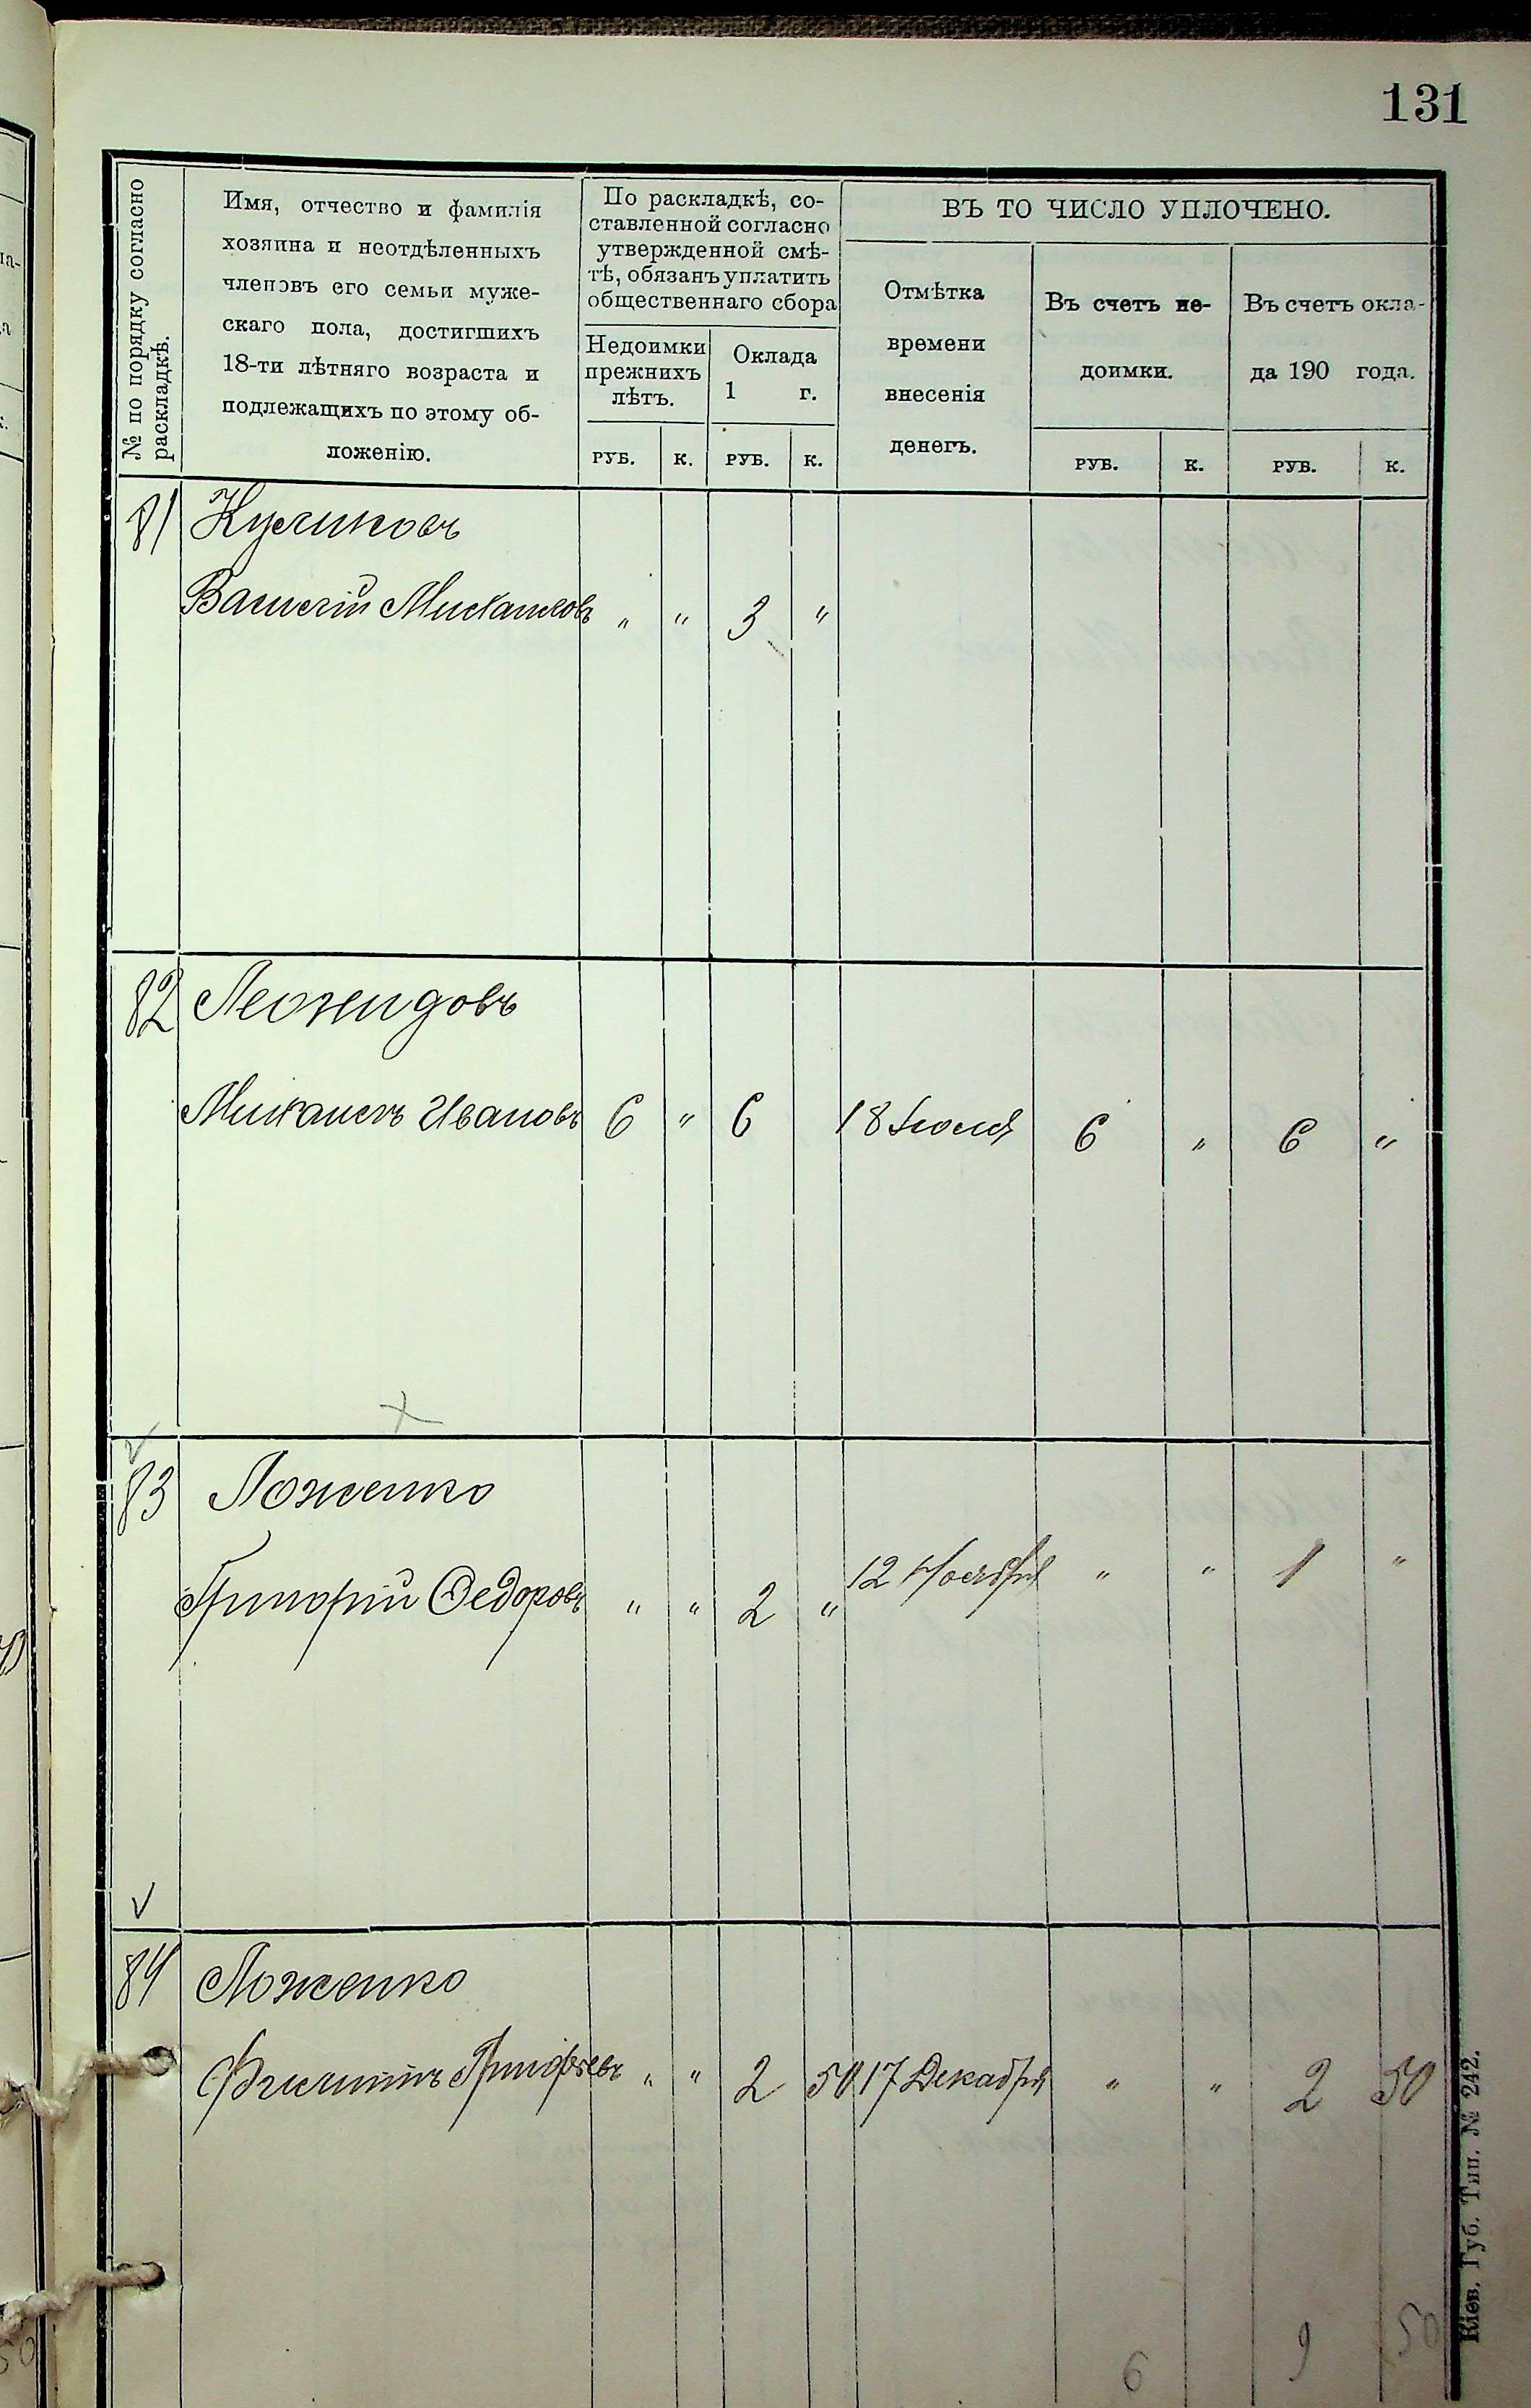 131
№ по порядку согласно
раскладкѣ.
Имя, отчество и фамилія
хозяина и неотдѣленныхъ
членовъ его семьи муже-
скаго пола, достигшихъ
18-ти лѣтняго возраста и
подлежащихъ по этому об-
ложенію.
По раскладкѣ, со-
ставленной согласно
утвержденной смѣ-
тѣ, обязанъ уплатить
общественнаго сбора
Недоимки
прежнихъ
лѣтъ.
Оклада
1 г.
РУБ. К. РУБ. К.
ВЪ ТО ЧИСЛО УПЛОЧЕНО.
Отмѣтка
времени
внесенія
денегъ.
Въ счетъ не-
доимки.
Въ счетъ окла-
да 190 года.
РУБ. К. РУБ. К.
81 Куликовъ
Василій Михайловъ " " 3 "
82 Леонидовъ
Михаилъ Ивановъ 6 " 6 18 Іюля 6 " 6 "
83 Ложенко
Григорій Федоровъ " " 2 " 12 Ноября " " 1 "
84 Ложенко
Филиппъ " " 2 50 17 Декабря " " 2 50
6 9 50
Кіев. Губ. Тип. № 242.